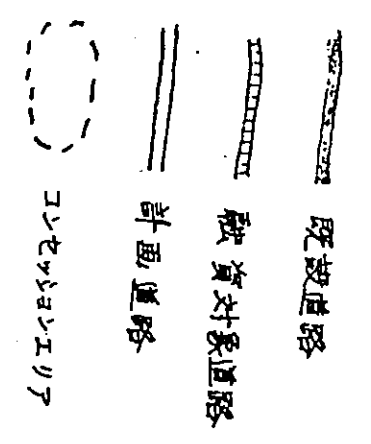 既設道路
融資対象道路
計画道路
コンセッションエリア